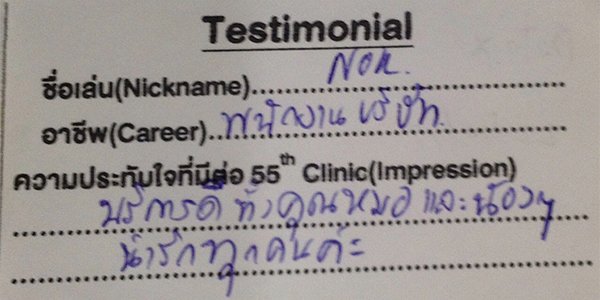 Testimonial
ชื่อเล่น(Nickname)..... Nok.
อาชีพ(Career)... พนักงานบริษัท
ความประทับใจที่มีต่อ 55th Clinic(Impression)
บริการดี ทั้งคุณหมอ และน้องๆ
น่ารักทุกคนค่ะ